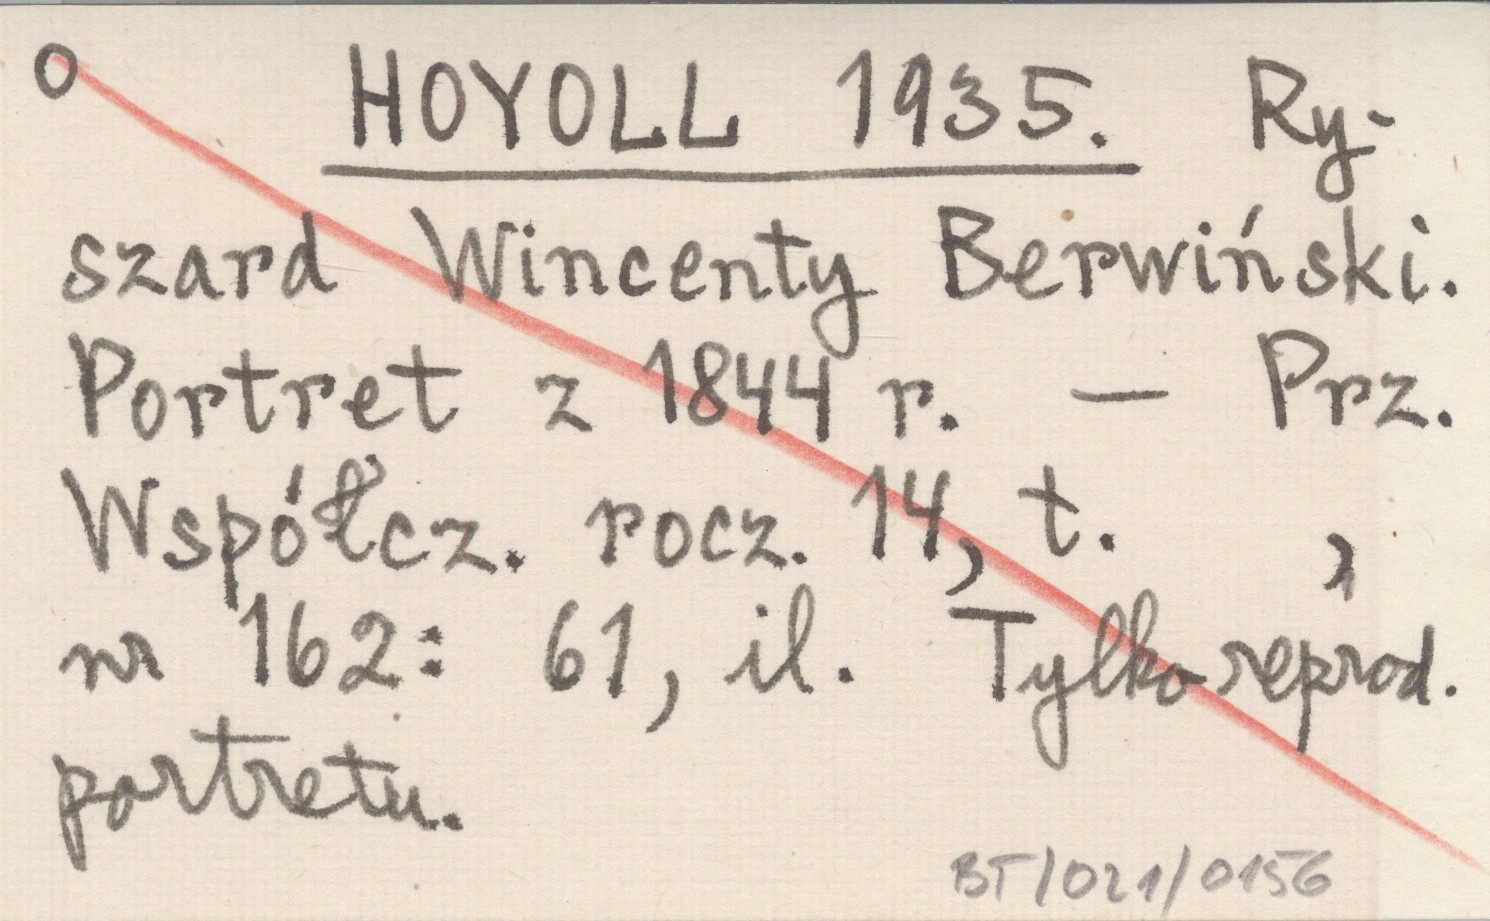 O HOYOLL 1935. Ry-
szard Wincenty Berwiński.
Portret z 1844 r. — Prz.
Współcz. rocz. 14, t. ,
nr 162: 61, il. Tylko reprod.
portretu.
BT/021/0156